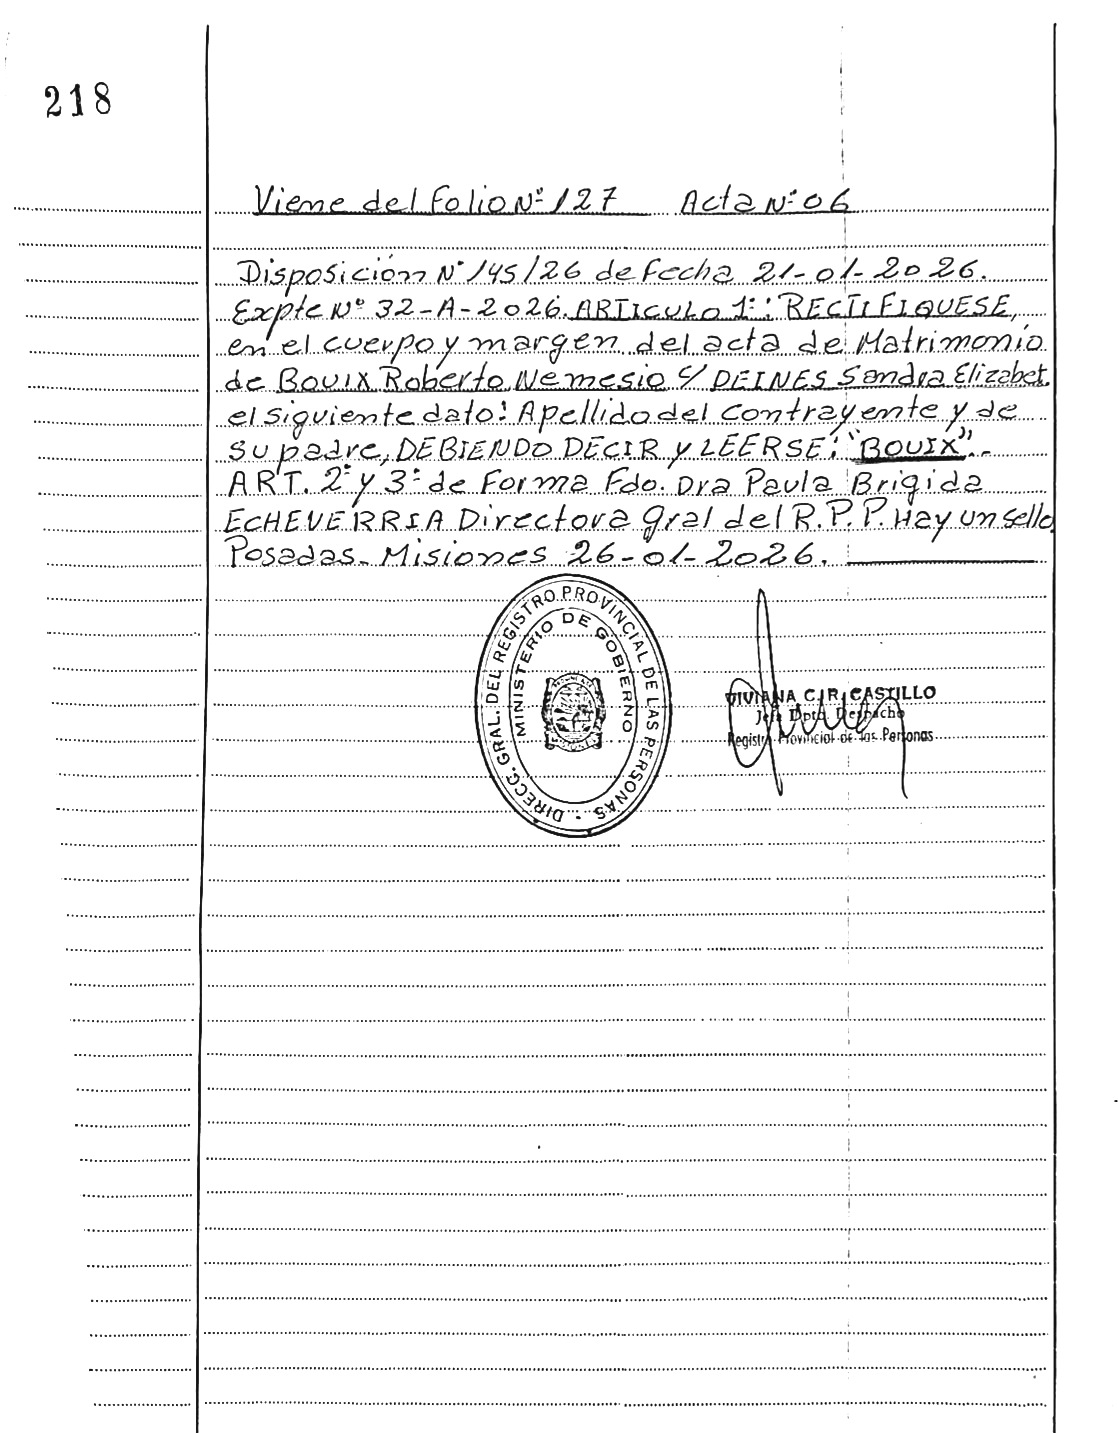 218
Viene del Folio Nº 127 Acta Nº 06
Disposición Nº 145/26 de Fecha 21-01-2026.
Expte Nº 32-A-2026. ARTICULO 1º: RECTIFIQUESE,
en el cuerpo y margen del acta de Matrimonio
de BOUIX Roberto Nemesio c/ DEINES Sandra Elizabet.
el siguiente dato: Apellido del contrayente y de
su padre, DEBIENDO DECIR y LEERSE: "BOUIX".-
ART. 2º y 3º de Forma Fdo. Dra Paula Brigida
ECHEVERRIA Directora gral del R.P.P. Hay un sello
Posadas- Misiones 26-01-2026.
DIRECC. GRAL. DEL REGISTRO PROVINCIAL DE LAS PERSONAS
MINISTERIO DE GOBIERNO
VIVIANA C.R. CASTILLO
Jefa Dpto. Despacho
Registro Provincial de las Personas